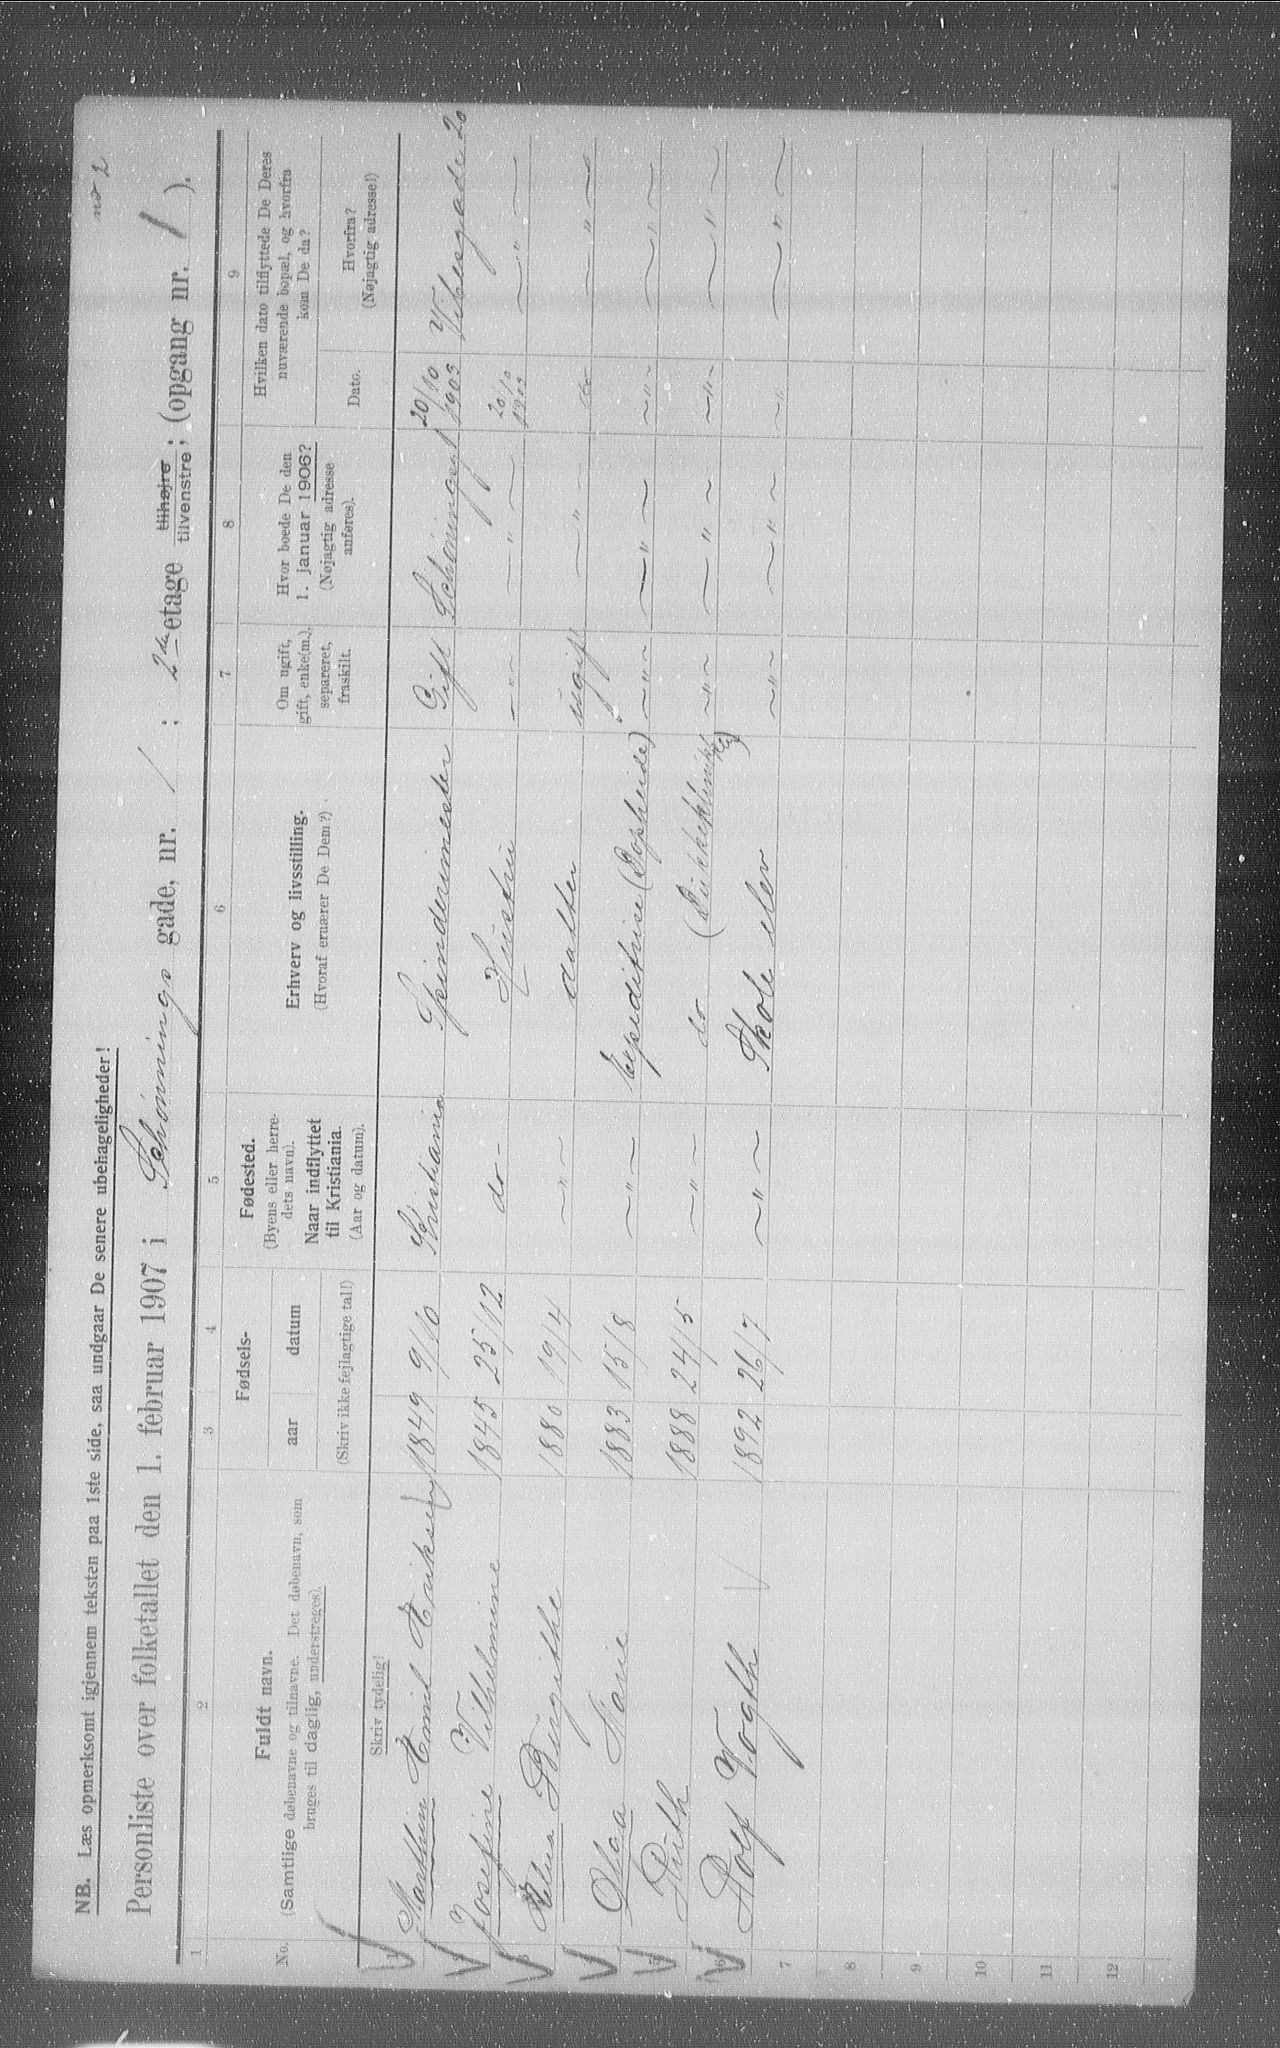 no 2
NB. Læs opmerksomt igjennem teksten paa 1ste side, saa undgaar De senere ubehageligheder!
Personliste over folketallet den 1. februar 1907 i Schönnings gade, nr. / ; 2de etage tilhøjre tilvenstre; (opgang nr. 1 ).
1 2 3 4 5 6 7 8 9
No.
Fuldt navn.
(Samtlige døbenavne og tilnavne. Det døbenavn, som
bruges til daglig, understreges).
Skriv tydelig!
Fødsels-
aar datum
(Skriv ikke fejlagtige tal!)
Fødested.
(Byens eller herre-
dets navn).
Naar indflyttet
til Kristiania.
(Aar og datum).
Erhverv og livsstilling.
(Hvoraf ernærer De Dem?)
Om ugift,
gift, enke(m.),
separeret,
fraskilt.
Hvor boede De den
1. januar 1906?
(Nøjagtig adresse
anføres).
Hvilken dato tilflyttede De Deres
nuværende bopæl, og hvorfra
kom De da?
Dato.
Hvorfra?
(Nøjagtig adresse!)
1 Marthin Emil Eriksen 1849 9/10 Kristiania Spindemester Gift Schöningsgt 20/10 1903 Vibesgade 20
Josefine Vilhelmine 1845 25/12 do- Hustru — " — — " — 20/10 1903 — " —
3 Elna Birgithe 1880 19/4 — " — datter ugift — " — do — " —
Olga Marie 1883 15/8 — " — Expeditrise — " — — " — — " — — " —
5 Ruth 1888 24/5 — " — do — " — — " — — " — — " —
6 Rolf Vogth 1892 26/7 — " — Skole elev — " — — " — — " — — " —
7
8
9
10
11
12